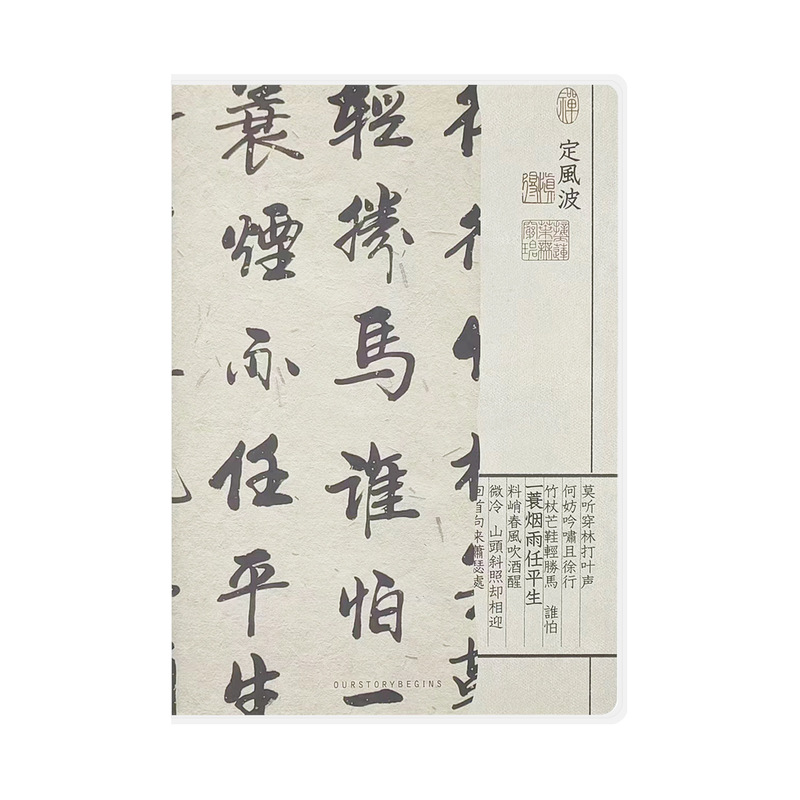 禪
定風波
莫听穿林打叶声
何妨吟嘯且徐行
竹杖芒鞋輕勝馬 誰怕
一蓑烟雨任平生
料峭春風吹酒醒
微冷 山頭斜照却相迎
回首向来蕭瑟處
輕勝馬誰怕一
蓑煙雨任平生
OURSTORYBEGINS